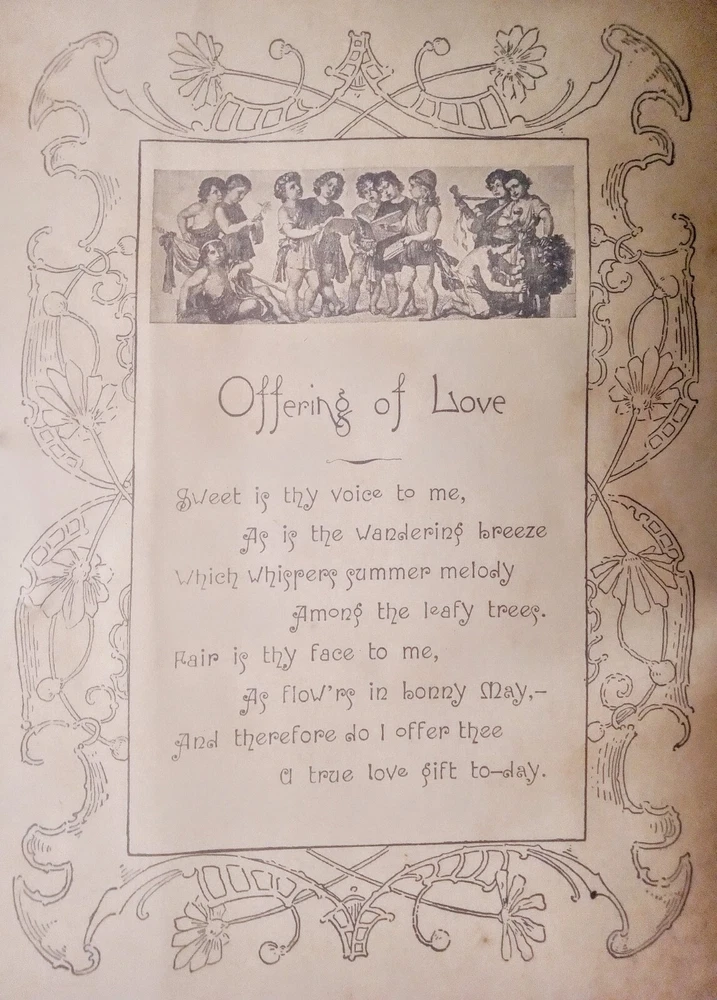 Offering of Love
Sweet is thy voice to me,
As is the wandering breeze
Which whispers summer melody
Among the leafy trees.
Fair is thy face to me,
As flow'rs in bonny May,—
And therefore do I offer thee
A true love gift to-day.